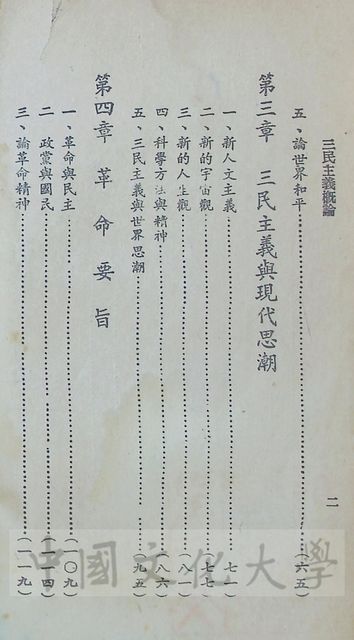 三民主義概論
二
五、論世界和平………………(六五)
第三章 三民主義與現代思潮
一、新人文主義………………(七一)
二、新的宇宙觀………………(七七)
三、新的人生觀………………(八一)
四、科學方法與精神………………(八六)
五、三民主義與世界思潮………………(九五)
第四章 革命要旨
一、革命與民主………………(一〇九)
二、政黨與國民………………(一一四)
三、論革命精神………………(一一九)
中國文化大學